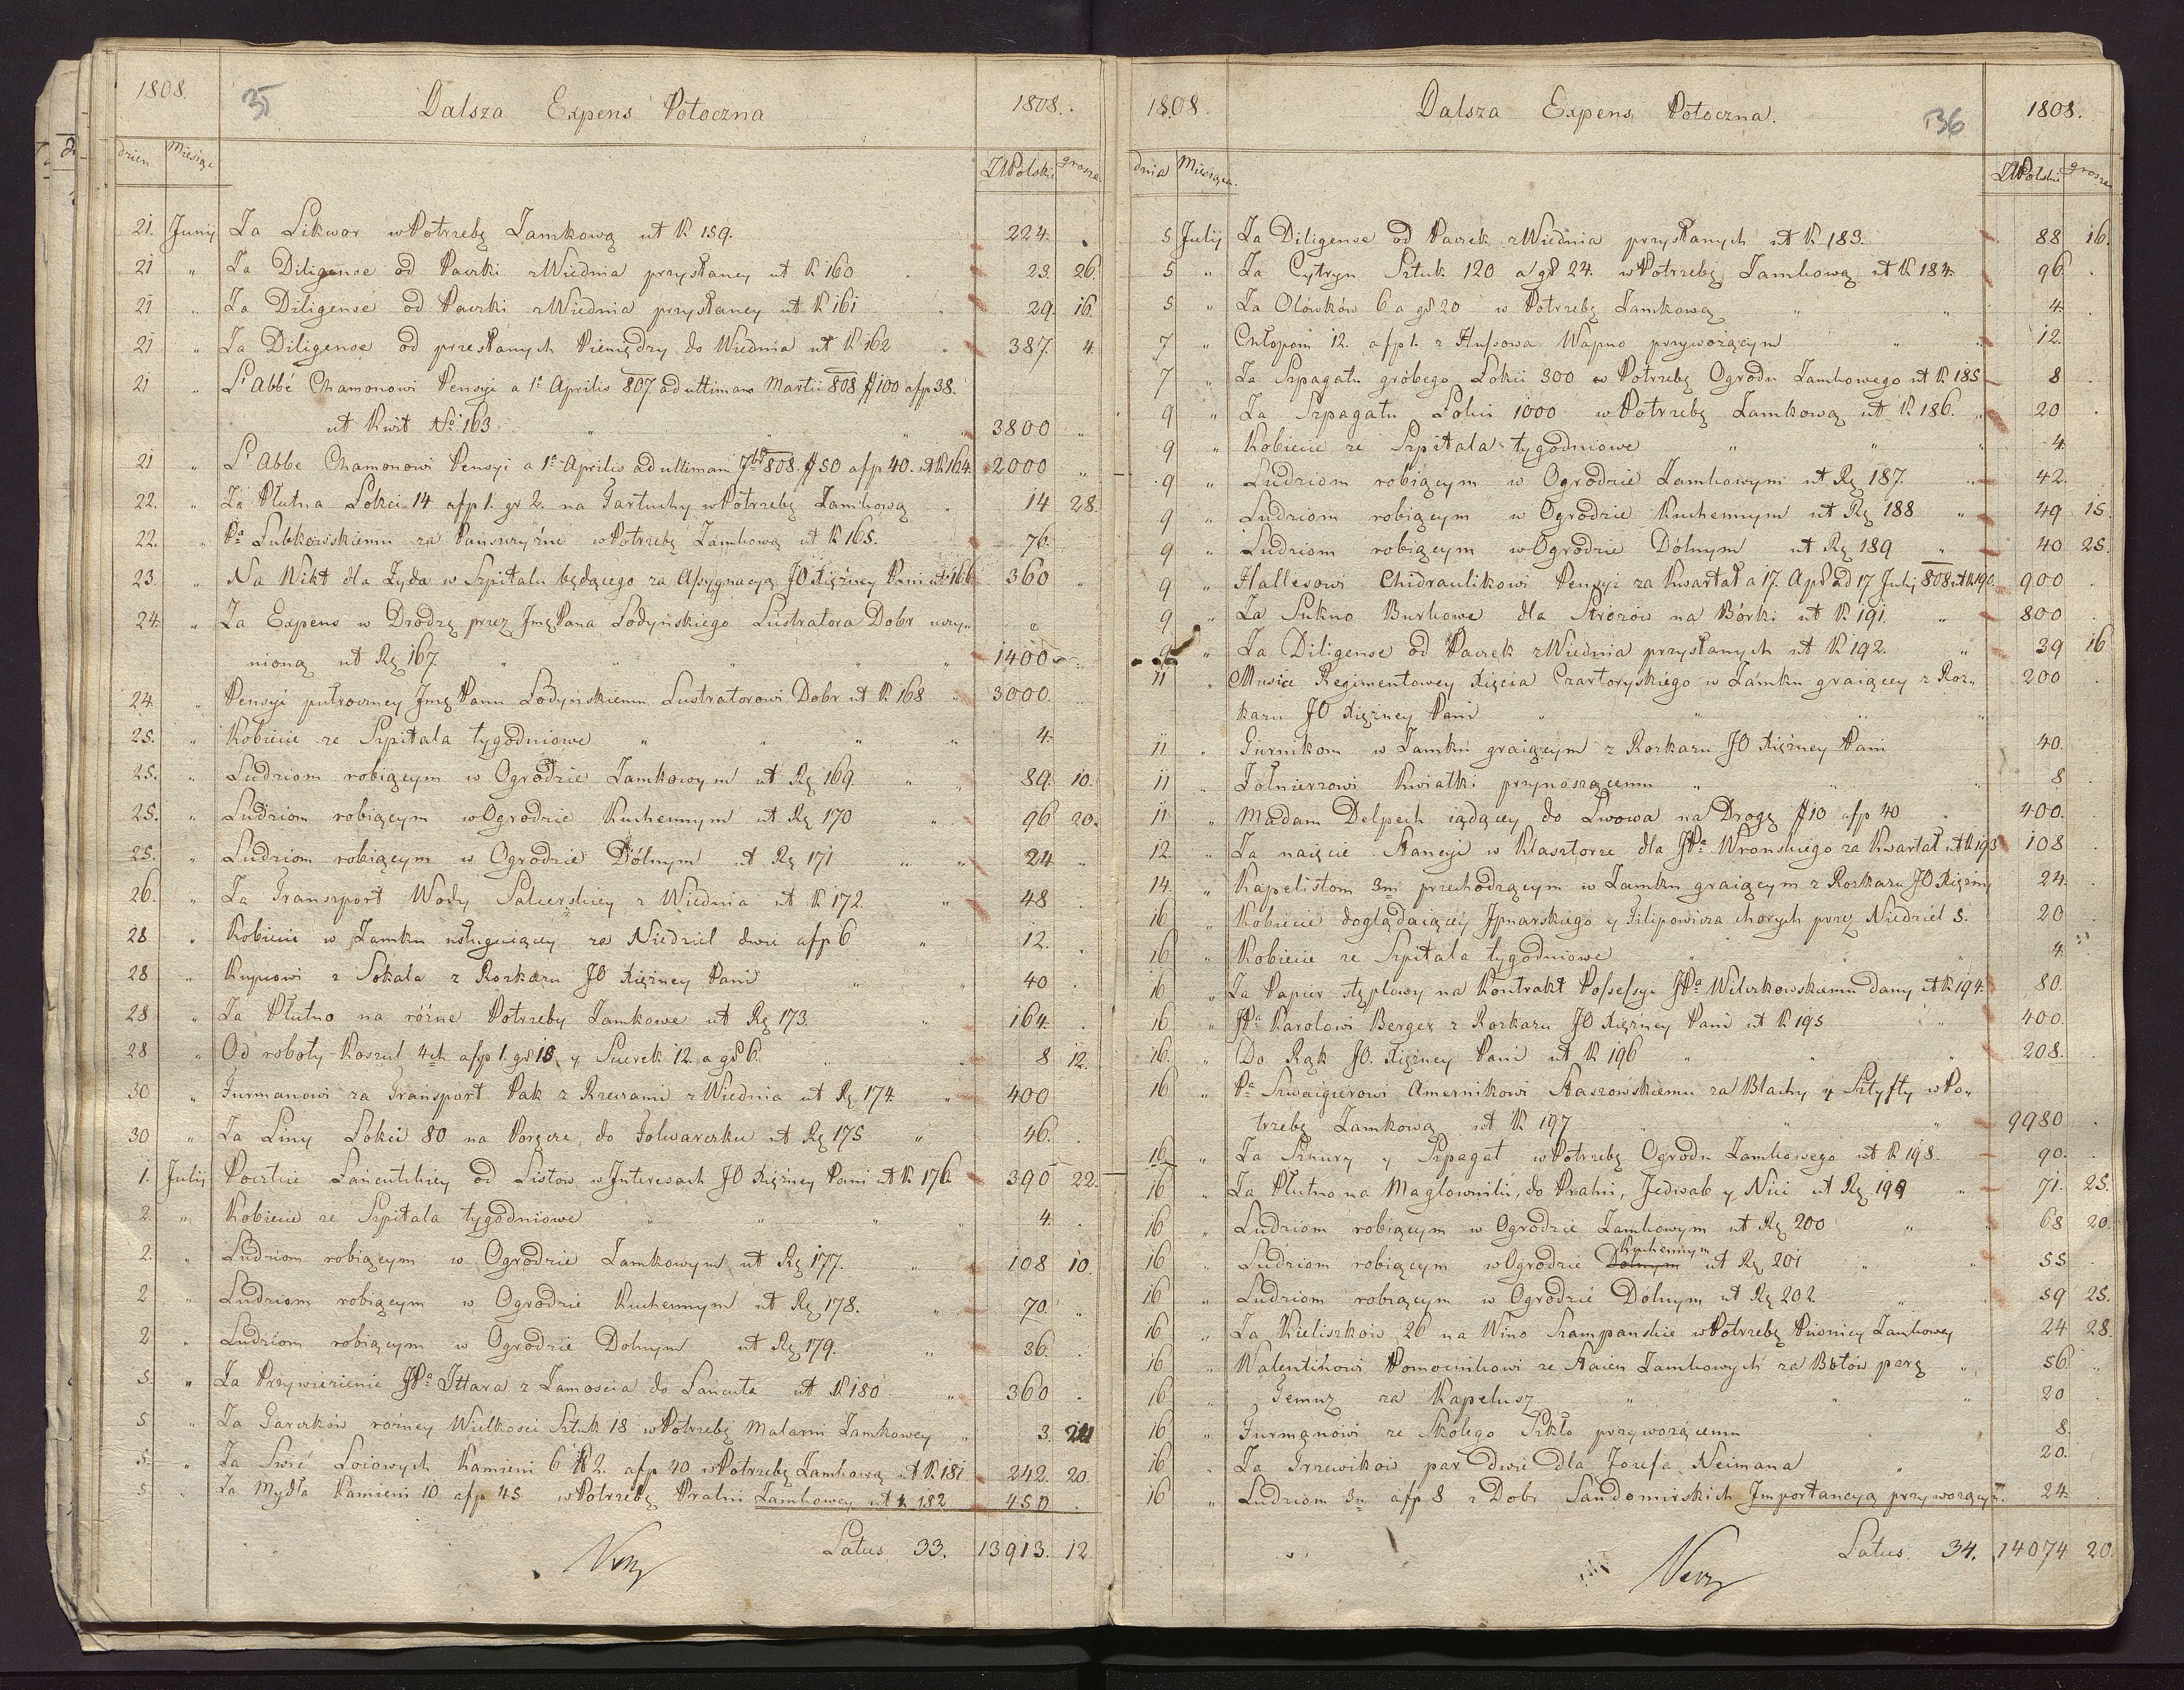 1808.
35
Dalsza Expens Potoczna
1808.
dzien Miesiąc
ZłPolskie grosze
21. Junij Za Likwor w Potrzebę Zamkową ut K 159. 224.
21 " Za Diligense od Paczki z Wiednia przysłaney ut K 160 23. 26.
21 " Za Diligense od Paczki z Wiednia przysłaney ut K 161 29. 16.
21 " Za Diligense od przesłanych Pieniędzy do Wiednia ut K 162 387. 4.
21 " Abbé Chamonowi Pensyi a 1ª Aprilis 807. ad ultimam Martii 808 # 100 afp 38.
ut Kwit No 163 " 3800 "
21 " Abbe Chamonowi Pensyi a 1ª Aprilis ad ultimam 7br 808. # 50 afp 40. ut K 164. 2000 "
22. " Za Płutna Łokci 14 afp 1. gr 2. na Fartuchy w Potrzebę Zamkową 14 28.
22. " Pa Lubkowskiemu za w Potrzebę Zamkową ut K 165. 76.
23. " Na Wikt dla Żyda w Szpitalu będącego za Assygnacyą JO Xiężney Pani ut 166 360
24. " Za Expens w Drodzę przez Jmę Pana Łodyńskiego Lustratora Dobr uczy„
nioną ut Rg 167 " 1400
24. " Pensyi putroczney Jmę Panu Łodyńskiemu Lustratorowi Dobr ut K 168 3000.
25. " Kobiecie ze Szpitala tygodniowe " 4.
25. " Ludziom robiącym w Ogrodzie Zamkowym ut Rg 169. 89. 10.
25. " Ludziom robiącym w Ogrodzie Kuchennym ut Rg 170 96 20.
25. " Ludziom robiącym w Ogrodzie Dólnym ut Rg 171 24 "
26. " Za Transzport Wody Selcerskiey z Wiednia ut K 172. 48
28 " Kobiecie w Zamku usługuiącey za Niedziel dwie afp 6 12.
28 " Kupcowi z Sokala z Rozkazu JO Xiężney Pani 40
28 " Za Płutno na różne Potrzeby Zamkowe ut Rg 173. 164.
28 " Od roboty Koszul 4ch afp 1. gr 15, y Scierek 12. a gr 6. 8 12.
30 " Furmanowi za Transport Pak z Rzeczami z Wiednia ut Rg 174 400
30 " Za Liny Łokci 80 na Poręcze, do Folwarczku ut Rg 175 " 46.
1. Julij Poczcie Łańcutckiey od Listów w Interesach JO Xiężney Pani ut K 176. 390 22.
2. " Kobiecie ze Szpitala tygodniowe " 4.
2. " Ludziom robiącym w Ogrodzie Zamkowym ut Rg 177. 108 10.
2 " Ludziom robiącym w Ogrodzie Kuchennym ut Rg 178. 70. "
2 " Ludziom robiącym w Ogrodzie Dolnym ut Rg 179. 36.
5. " Za Przywiezienie JPa Ittara z Zamoscia do Łańcuta ut K 180 360
5 " Za Garczków rożney Wielkosci Sztuk 18 w Potrzebę Malarni Zamkowey 3.
5. " Za Swić Łoiowych Kamieni 6 ℔ 2. afp 40 w Potrzebę Zamkową ut K 181 242. 20.
5 " Za Mydła Kamieni 10 afp 45 w Potrzebę Pralni Zamkowey ut K 182 450
Latus 33. 13913. 12.
1808.
Dalsza Expens Potoczna.
36
1808.
dnia Miesiąca.
ZłPolskie grosze
5 Julij Za Diligense od Paczek z Wiednia przysłanych ut K 183. 88 16.
5 " Za Cytryn Sztuk 120 a gr 24. w Potrzebę Zamkową ut K 184. 96
5 " Za Olówków 6 a gr 20 w Potrzebę Zamkową " 4.
7 " Chłopom 12. afp 1. z Hussowa Wapno przywożącym " 12.
7 " Za Szpagatu gróbego Łokci 300 w Potrzebę Ogrodu Zamkowego ut K 185 8
9 " Za Szpagatu Łokci 1000 w Potrzebę Zamkową ut K 186. 20
9 " Kobiecie ze Szpitala tygodniowe " 4
9 " Ludziom robiącym w Ogrodzie Zamkowym ut Rg 187. 42.
9 " Ludziom robiącym w Ogrodzie Kuchennym ut Rg 188 49 15.
9 " Ludziom robiącym w Ogrodzie Dólnym ut Rg 189 40 25.
9 " Hallesowi Chidraulikowi Pensyi za Kwartał a 17. Apr ad 17 Julij 808 ut K 190. 900
9 " Za Sukno Burkowe dla Strozów na Bórki ut K 191. 800
9 " Za Diligense od Paczek z Wiednia przysłanych ut K 192. 39 16
11 " Musice Regimentowey Xięcia Czartoryskiego w Zamku graiącey z Roz„ 200
kazu JO Xiężney Pani "
11 " Gurnikom w Zamku graiącym z Rozkazu JO Xiężney Pani 40.
11 " Żołnierzowi Kwiatki przynoszącemu " 8
11. " Madam Delpech iądącey do Lwowa na Drogę # 10 afp 40 400.
12. " Za naięcie Stancyi w Klasztorze dla JPa Wronskiego za Kwartał ut K 193 108
14. " Kapelistom 3m przechodzącym w Zamku graiącym z Rozkazu JO Xiężny 24.
16 " Kobiecie doglądaiącey y Filipowicza chorych przez Niedziel 5. 20
16 " Kobiecie ze Szpitala tygodniowe " 4.
16 " Za Papier stęplowy na Kontrakt Possessyi JPa Wilczkowskiemu dany ut K 194. 80.
16 " JPa Karolowi Berger z Rozkazu JO Xiężney Pani ut K 195 400
16. " Do Rąk JO. Xiężney Pani ut K 196 " 208.
16 " Pa Szwaigierowi Amernikowi Staszowskiemu za Blachy y Sztyfty w Po„
trzebę Zamkową ut K 197 " 9980
16 " Za Sznury y Szpagat w Potrzebę Ogrodu Zamkowego ut K 198. 90.
16 " Za Płutno na Maglowniki, do Pralni, Jedwab y Nici ut Rg 199 71. 25.
16 " Ludziom robiącym w Ogrodzie Zamkowym ut Rg 200 68 20.
16 " Ludziom robiącym w Ogrodzie Dolnym Kuchennym ut Rg 201 55
16 " Ludziom robiącym w Ogrodzie Dólnym ut Rg 202. 59 25.
16 " Za Kieliszków 26 na Wino Szampanskie w Potrzebę Piwnicy Zamkowey 24 28.
16 " Walentikowi Pomocnikowi ze Staien Zamkowych za Botów parę 56 "
16 " Temuz za Kapelusz " 20
16 " Furmanowi ze Skolego Szkło przywożącemu 8.
16 " Za Trzewików par dwie dla Jozefa Neimana 20.
16 " Ludziom 3m afp 8 z Dobr Sandomirskich Importancyą przywożącym. 24.
Latus. 34. 14074 20.